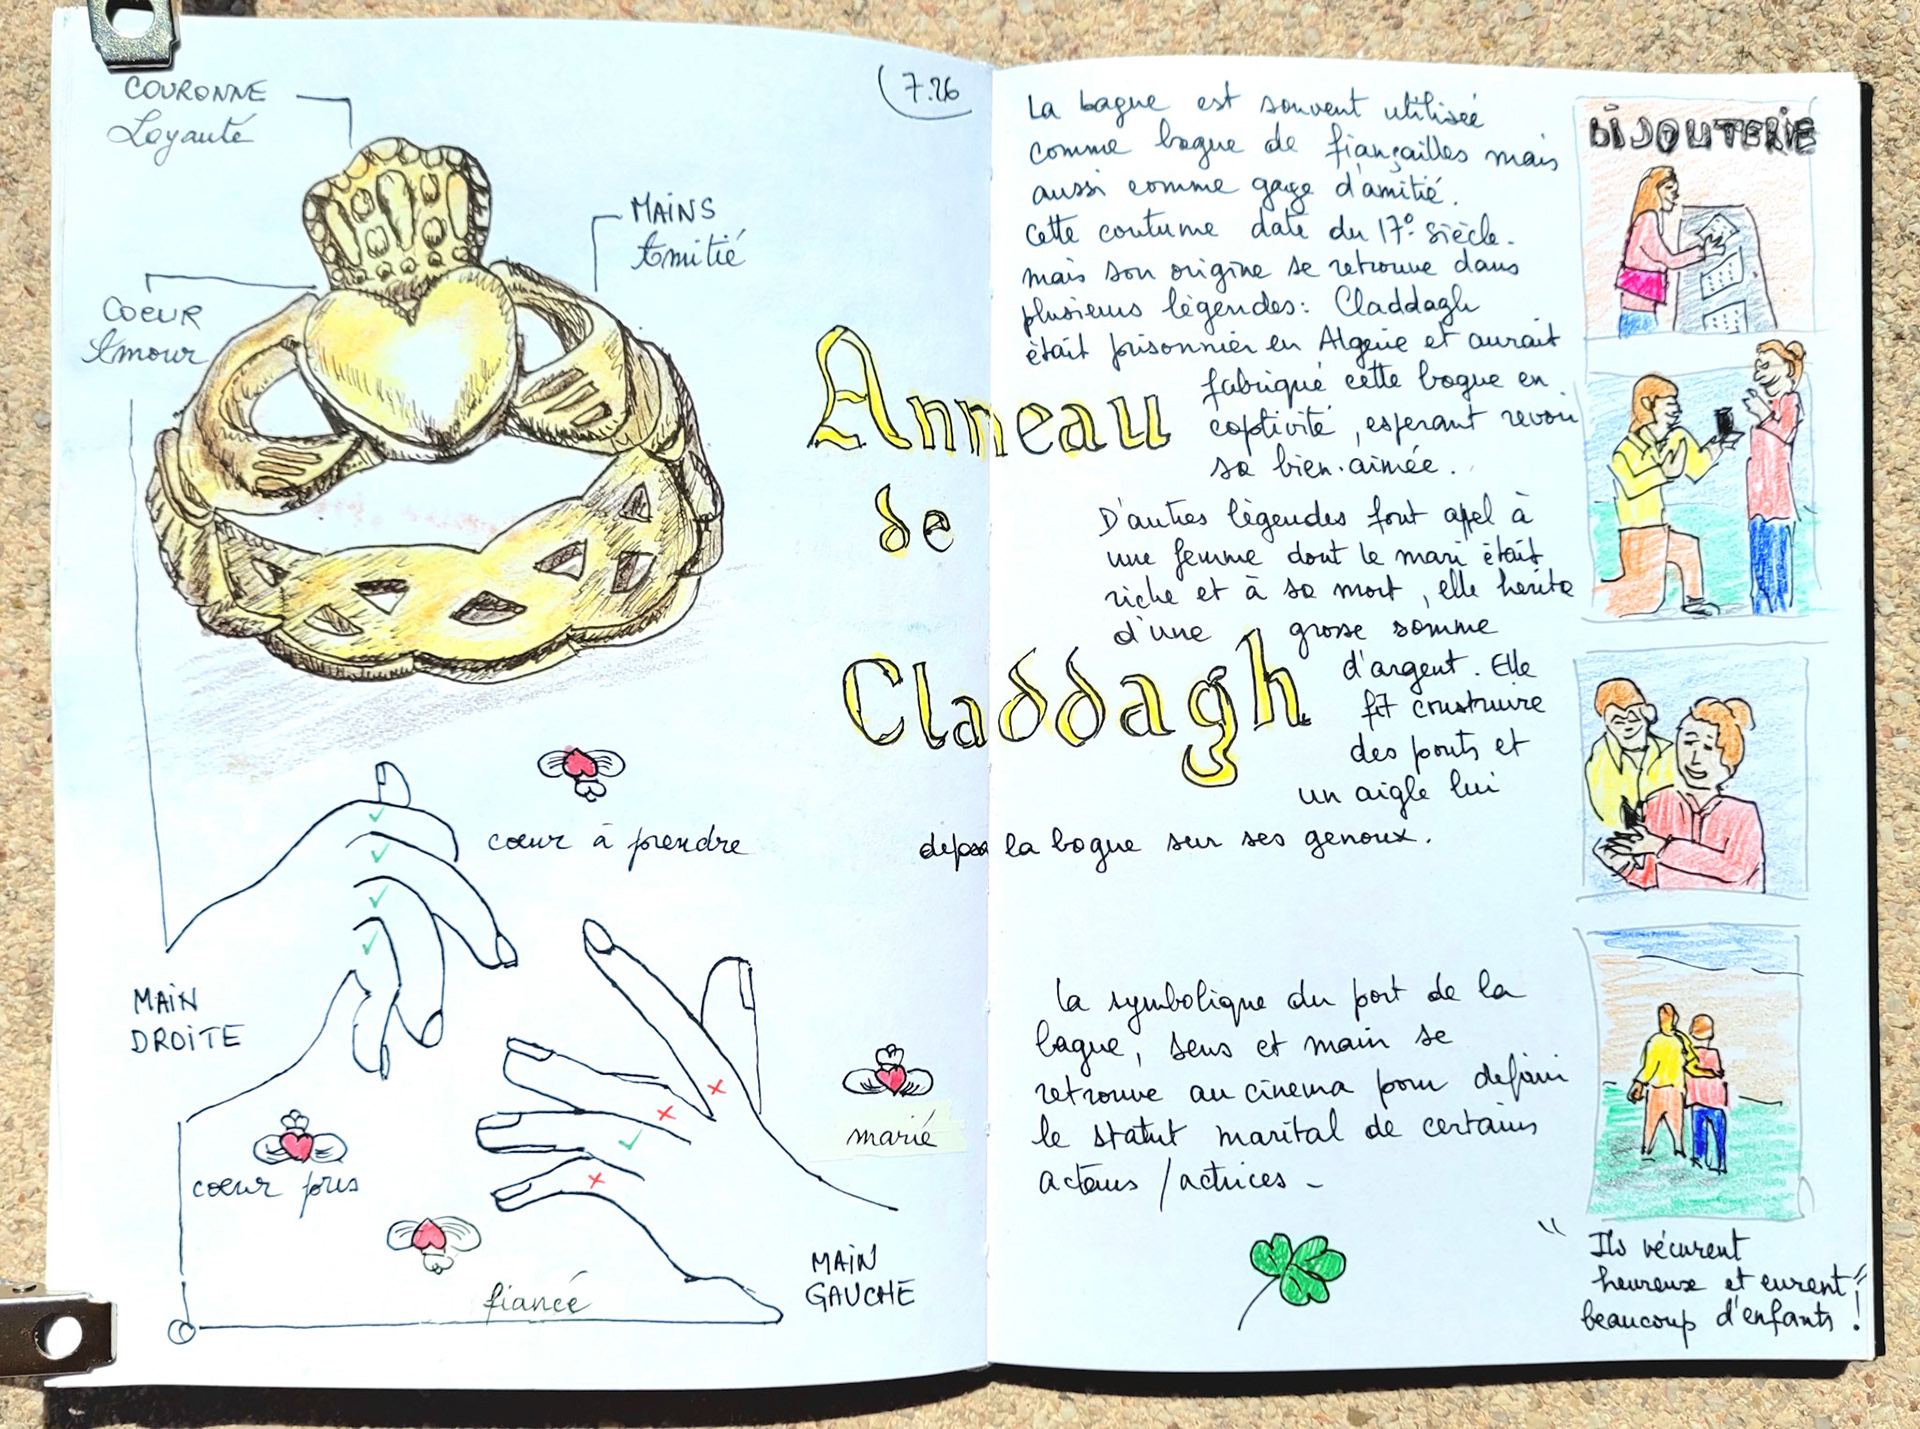 COURONNE
Loyauté
MAINS
Amitié
COEUR
Amour
7.26
Anneau
de
Claddagh
coeur à prendre
MAIN
DROITE
coeur pris
marié
fiancé
MAIN
GAUCHE
La bague est souvent utilisée
comme bague de fiançailles mais
aussi comme gage d'amitié.
Cette coutume date du 17e siècle.
mais son origine se retrouve dans
plusieurs légendes: Claddagh
était prisonnier en Algérie et aurait
fabriqué cette bague en
captivité, esperant revoir
sa bien-aimée.
D'autres légendes font apel à
une femme dont le mari était
riche et à sa mort, elle herita
d'une grosse somme
d'argent. Elle
fit construire
des ponts et
un aigle lui
deposa la bague sur ses genoux.
La symbolique du port de la
bague, sens et main se
retrouve au cinema pour definir
le statut marital de certains
acteurs / actrices -
BIJOUTERIE
" Ils vécurent
heureux et eurent "
beaucoup d'enfants !